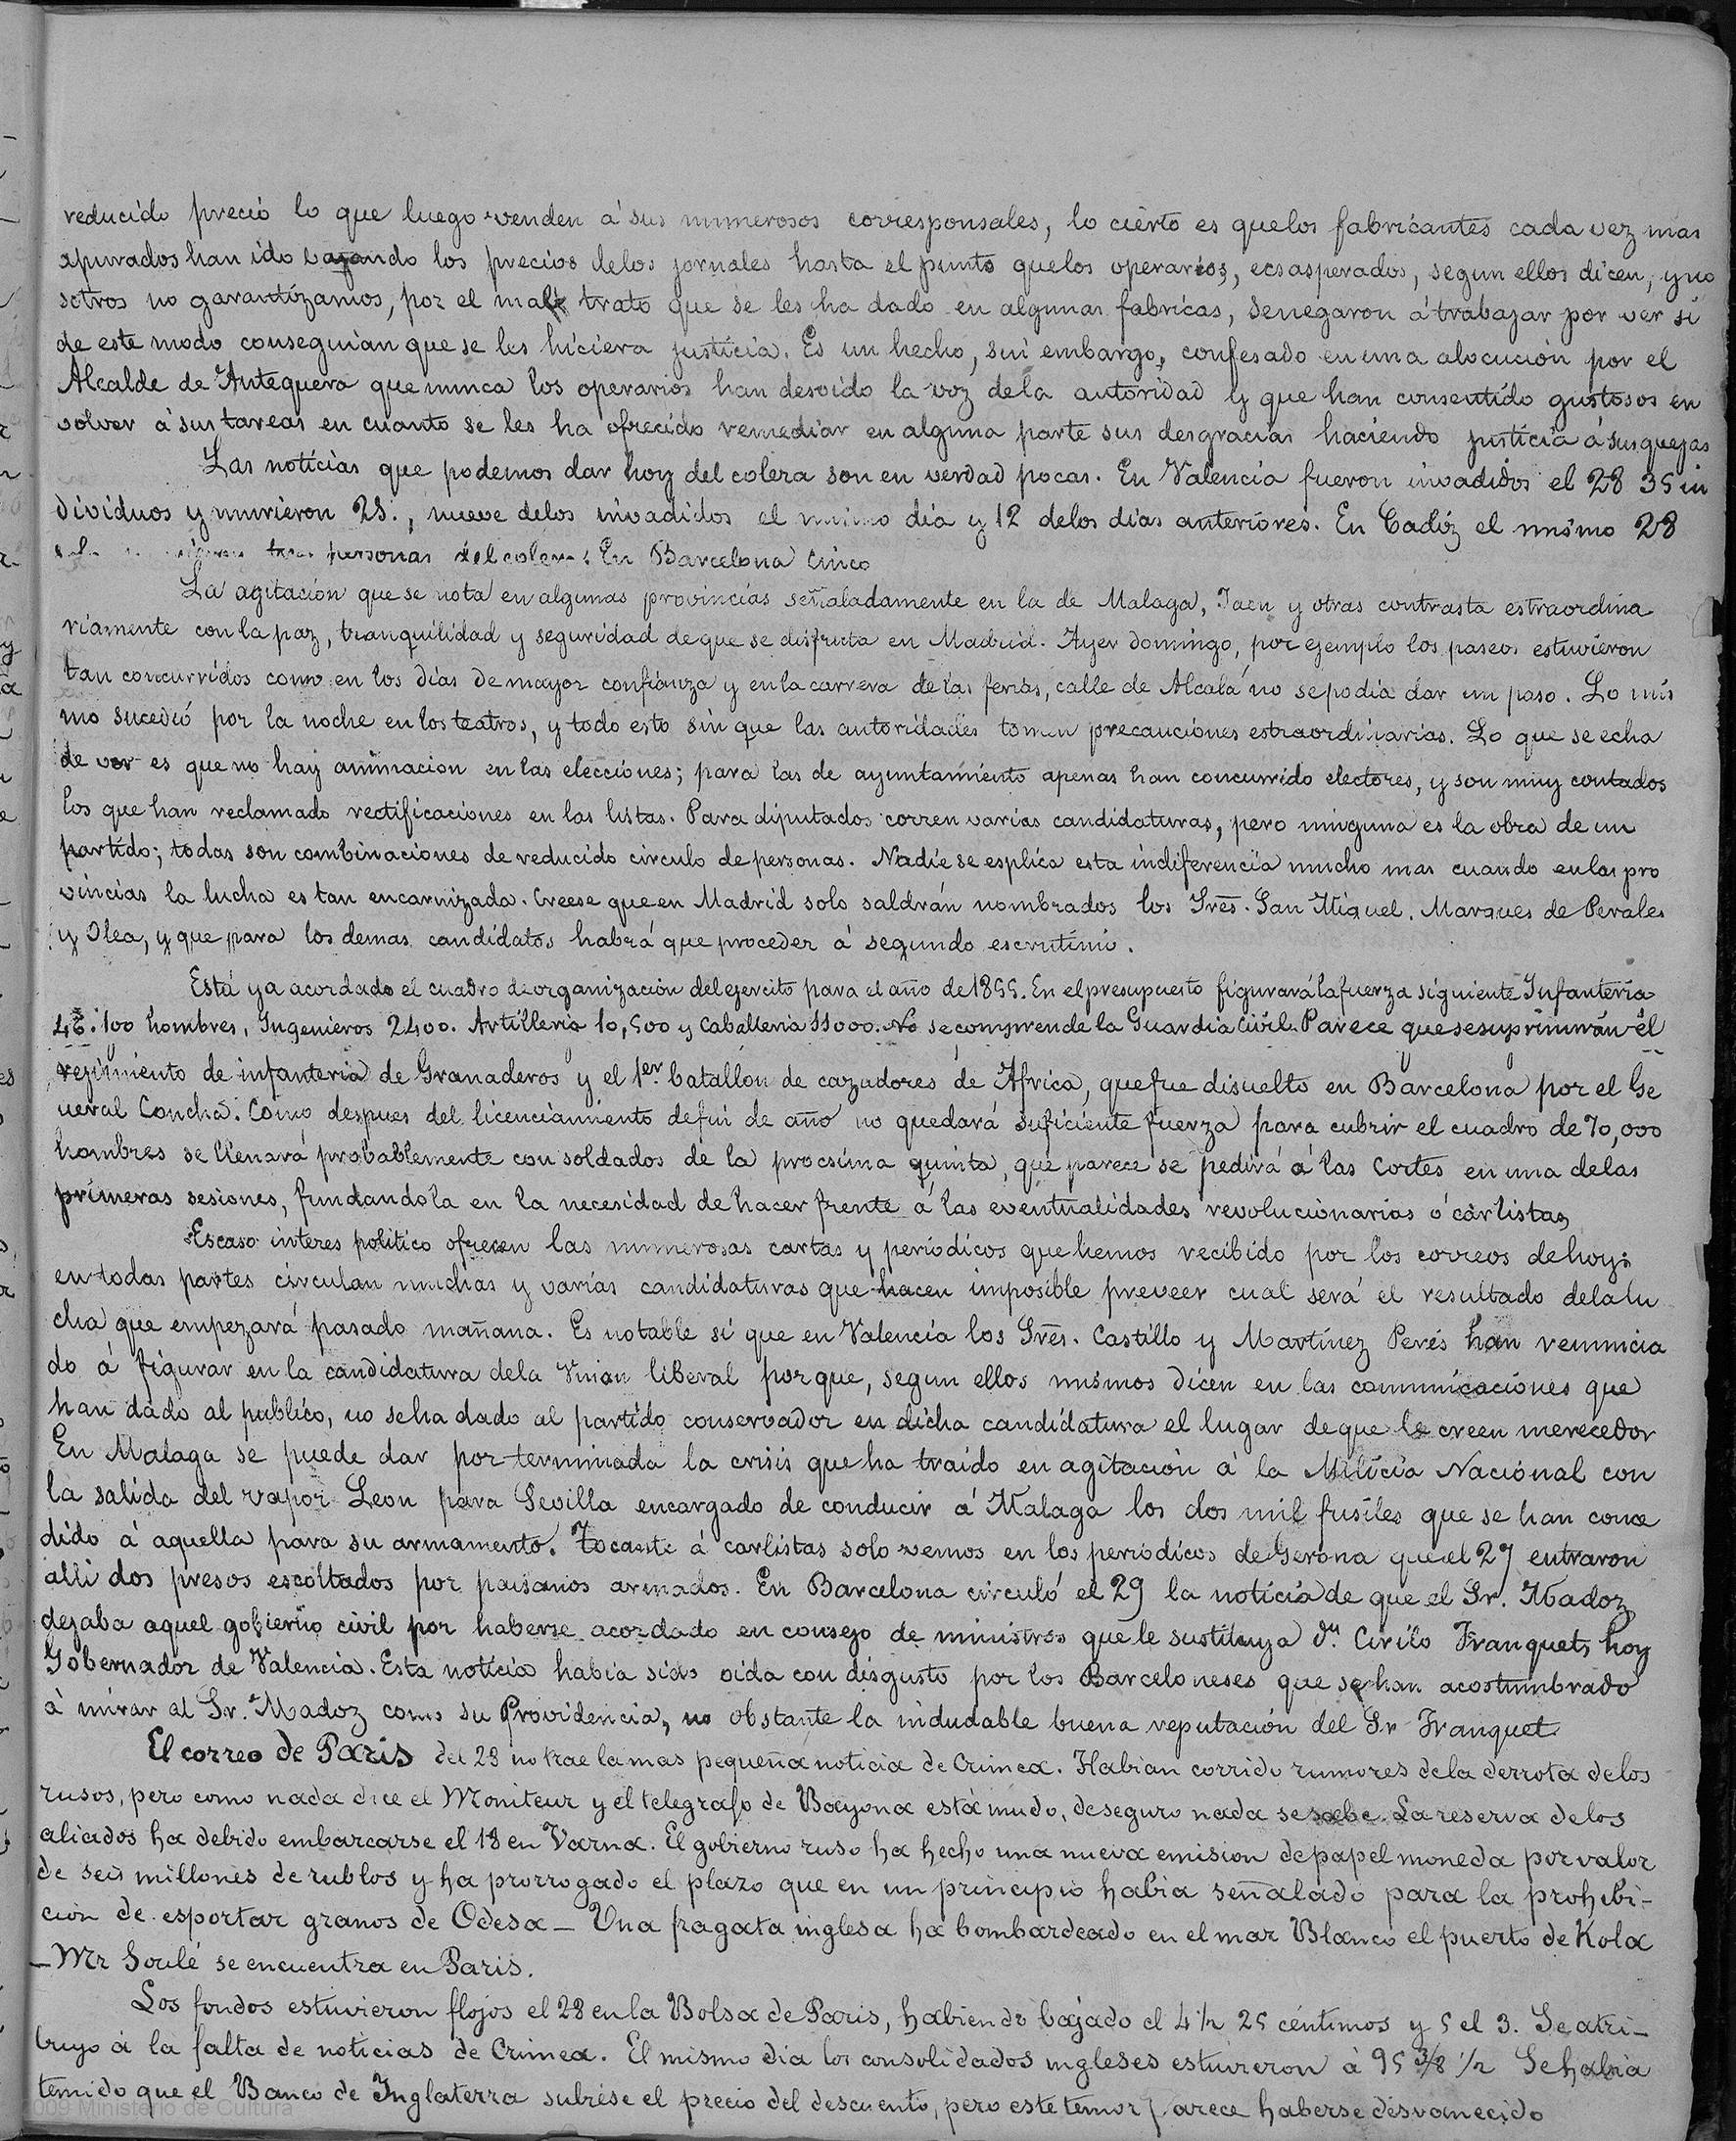 reducido precio lo que luego venden á sus numerosos corresponsales, lo cierto es quelos fabricantes cada vez mas
apurados han ido bajando los precios delos jornales hasta el punto quelos operarios, ecsasperados, segun ellos dicen, y no
sotros no garantizamos, por el mal trato que se les ha dado en algunas fabricas, senegaron á trabajar por ver si
de este modo conseguian que se les hiciera justicia. Es un hecho, sin embargo, confesado en una alocucion por el
Alcalde de Antequera que nunca los operarios han desoido la voz dela autoridad y que han consentido gustosos en
volver á sus tareas en cuanto se les ha ofrecido remediar en alguna parte sus desgracias haciendo justicia á sus quejas
Las noticias que podemos dar hoy del colera son en verdad pocas. En Valencia fueron invadidos el 28 35 in
dividuos y murieron 28., nueve delos invadidos el mismo dia y 12 delos dias anteriores. En Cadiz el mismo 28
tres personas del colera: En Barcelona cinco
La agitacion que se nota en algunas provincias señaladamente en la de Malaga, Jaen y otras contrasta estraordina
riamente con la paz, tranquilidad y seguridad de que se disfruta en Madrid. Ayer domingo, por ejemplo los paseos estuvieron
tan concurridos como en los dias de mayor confianza y en la carrera de las ferias, calle de Alcalá no se podia dar un paso. Lo mis
mo sucedió por la noche en los teatros, y todo esto sin que las autoridades tomen precauciones estraordinarias. Lo que se echa
de ver es que no hay animacion en las elecciones; para las de ayuntamiento apenas han concurrido electores, y son muy contados
los que han reclamado rectificaciones en las listas. Para diputados corren varias candidaturas, pero ninguna es la obra de un
partido; todas son combinaciones de reducido circulo de personas. Nadie se esplica esta indiferencia mucho mas cuando en las pro
vincias la lucha es tan encarnizada. Creese que en Madrid solo saldrán nombrados los Sres. San Miguel, Marques de Perales
y Olea, y que para los demas candidatos habrá que proceder á segundo escrutinio.
Está ya acordado el cuadro de organizacion del ejercito para el año de 1855. En el presupuesto figurará la fuerza siguiente Infanteria
100 hombres, Ingenieros 2400. Artilleria 10,500 y Caballeria 11000. No se comprende la Guardia Civil. Parece que se suprimirán el
regimiento de infanteria de Granaderos y el 1er. batallon de cazadores de Africa, que fue disuelto en Barcelona por el Ge
neral Concha. Como despues del licenciamiento de fin de año no quedará suficiente fuerza para cubrir el cuadro de 70,000
hombres se llenará probablemente con soldados de la procsima quinta, que parece se pedirá á las Cortes en una delas
primeras sesiones, fundandola en la necesidad de hacer frente á las eventualidades revolucionarias ó carlistas
Escaso interes politico ofrecen las numerosas cartas y periodicos que hemos recibido por los correos de hoy:
en todas partes circulan muchas y varias candidaturas que hacen imposible preveer cual será el resultado dela lu
cha que empezará pasado mañana. Es notable si que en Valencia los Sres. Castillo y Martinez Peres han renuncia
do á figurar en la candidatura dela Union liberal porque, segun ellos mismos dicen en las comunicaciones que
han dado al publico, no se ha dado al partido conservador en dicha candidatura el lugar de que le creen merecedor
En Malaga se puede dar por terminada la crisis que ha traido en agitacion á la Milicia Nacional con
la salida del vapor Leon para Sevilla encargado de conducir á Malaga los dos mil fusiles que se han conce
dido á aquella para su armamento. Tocante á carlistas solo vemos en los periodicos de Gerona que el 27 entraron
alli dos presos escoltados por paisanos armados. En Barcelona circuló el 29 la noticia de que el Sr. Madoz
dejaba aquel gobierno civil por haberse acordado en consejo de ministros que le sustituya Dn. Cirilo Franquet, hoy
Gobernador de Valencia. Esta noticia habia sido oida con disgusto por los Barceloneses que se han acostumbrado
á mirar al Sr. Madoz como su Providencia, no obstante la indudable buena reputacion del Sr Franquet
El correo de Paris del 28 no trae la mas pequeña noticia de Crimea. Habian corrido rumores dela derrota delos
rusos, pero como nada dice el Moniteur y el telegrafo de Bayona está mudo, deseguro nada se sabe. La reserva delos
aliados ha debido embarcarse el 18 en Varna. El gobierno ruso ha hecho una nueva emision de papel moneda por valor
de seis millones de rublos y ha prorrogado el plazo que en un principio habia señalado para la prohibi-
cion de esportar granos de Odesa — Una fragata inglesa ha bombardeado en el mar Blanco el puerto de Kola
— Mr Soulé se encuentra en Paris.
Los fondos estuvieron flojos el 28 en la Bolsa de Paris, habiendo bajado el 4 1/2 25 céntimos y 5 el 3. Se atri-
buyo á la falta de noticias de Crimea. El mismo dia los consolidados ingleses estuvieron á 95 3/8 1/2 Se habia
temido que el Banco de Inglaterra subiese el precio del descuento, pero este temor parece haberse desvanecido
2009 Ministerio de Cultura